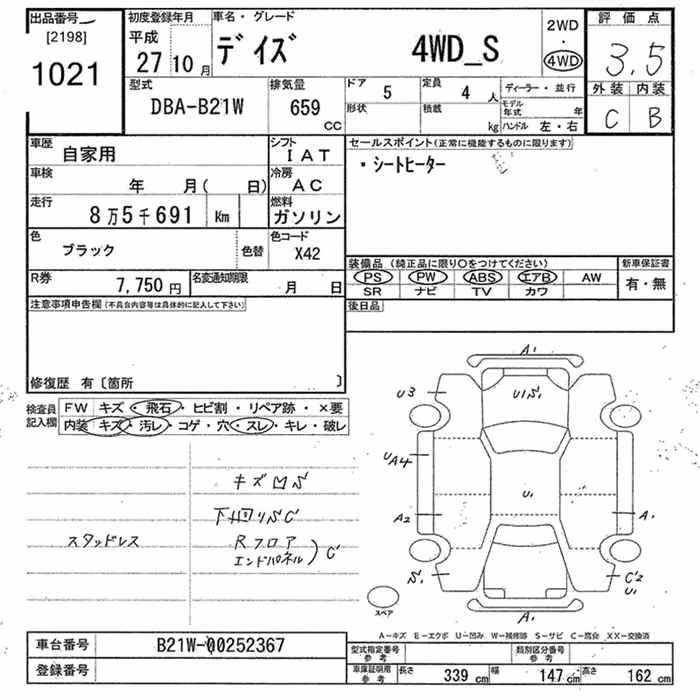 出品番号
[2198]
1021
初度登録年月
平成
27 10 月
車名・グレード
デイズ 4WD_S
2WD
・
4WD
評価点
3.5
外装 内装
C B
型式
DBA-B21W
排気量
659 CC
ドア 5
定員 4 人
ディーラー・並行
形状
積載 kg
モデル年式 年
ハンドル 左・右
車歴 自家用
シフト IAT
セールスポイント(正常に機能するものに限ります)
・シートヒーター
車検 年 月( 日)
冷房 AC
走行 8万5千691 Km
燃料 ガソリン
色 ブラック
色替
色コード X42
装備品(純正品に限り○をつけてください)
新車保証書
PS PW ABS エアB AW
有・無
SR ナビ TV カワ
R券 7,750円
名変通知期限 月 日
後日品
注意事項申告欄(不具合内容等は具体的に記入して下さい)
修復歴 有〔箇所 〕
検査員記入欄
FW キズ・飛石・ヒビ割・リペア跡・×要
内装 キズ・汚レ・コゲ・穴・スレ・キレ・破レ
キズ凹S
下回りSC
スタッドレス
Rフロア
エンドパネル ) C
A1
U3
U1S1
UA4
A2
U1
A1
S1
C2
U1
A1
スペア
A-キズ E-エクボ U-凹み W-補修跡 S-サビ C-腐食 XX-交換済
車台番号 B21W-00252367
登録番号
型式指定番号 参考
類別区分番号 参考
車庫証明用 参考
長さ 339 cm 幅 147 cm 高さ 162 cm